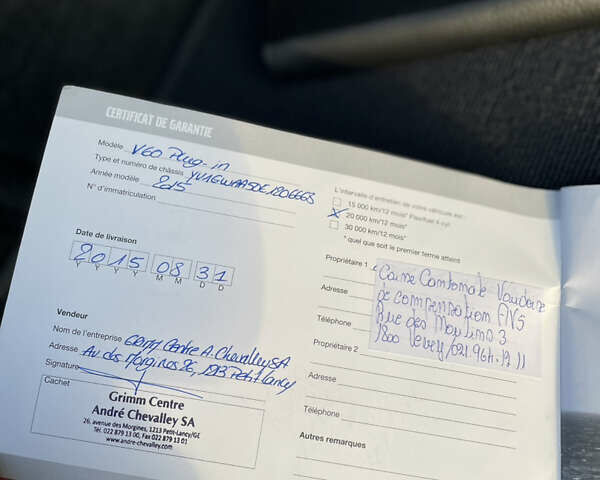 CERTIFICAT DE GARANTIE
Modèle V60 Plug-in
Type et numéro de châssis
Année modèle 2015
N° d'immatriculation
Date de livraison
2015 08 31
Y Y Y Y M M D D
Vendeur
Nom de l'entreprise Centre A. Chevalley SA
Adresse Av des Morgines 26, 1213 Petit-Lancy
Signature
Cachet
Grimm Centre
André Chevalley SA
26, avenue des Morgines, 1213 Petit-Lancy/GE
Tél. 022 879 13 00, Fax 022 879 13 01
www.andre-chevalley.com
L'intervalle d'entretien de votre véhicule est :
15 000 km/12 mois*
20 000 km/12 mois*
30 000 km/12 mois*
* quel que soit le premier terme atteint
Propriétaire 1
Caisse Cantonale Vaudoise
de compensation AVS
Rue des Moulins 3
1800 Vevey/021.964.12 11
Adresse
Téléphone
Propriétaire 2
Adresse
Téléphone
Autres remarques